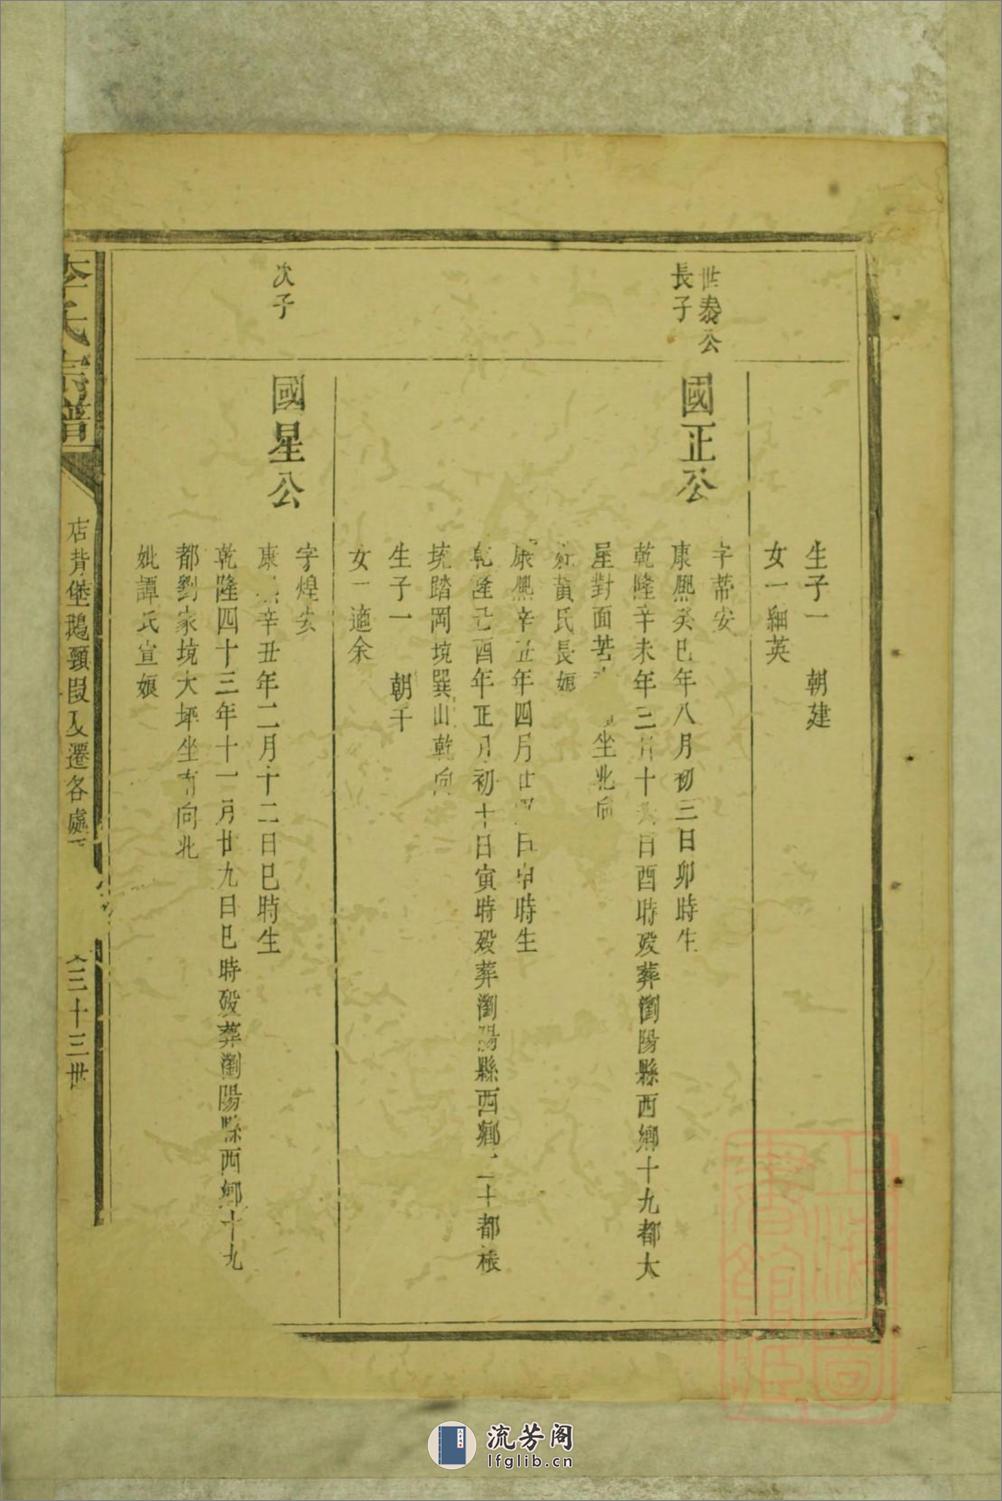 生子一　朝建
女一細英
世泰公
長子
國正公
字蒂安
康熙癸巳年八月初三日卯時生
乾隆辛未年三月十六日酉時歿葬瀏陽縣西鄉十九都大
星對面 坐北向
黃氏長娘
康熙辛丑年四月廿 日申時生
乾隆己酉年正月初十日寅時歿葬瀏陽縣西鄉二十都
境踏岡境巽山乾向
生子一　朝千
女一適余
次子
國星公
字煌安
康 辛丑年二月十二日巳時生
乾隆四十三年十一月廿九日巳時歿葬瀏陽縣西鄉十九
都劉家境大坪坐南向北
妣譚氏宣娘
李氏宗譜
店背堡鵝頸段及遷各處
三十三世
上海圖書館藏
流芳阁
lfglib.cn